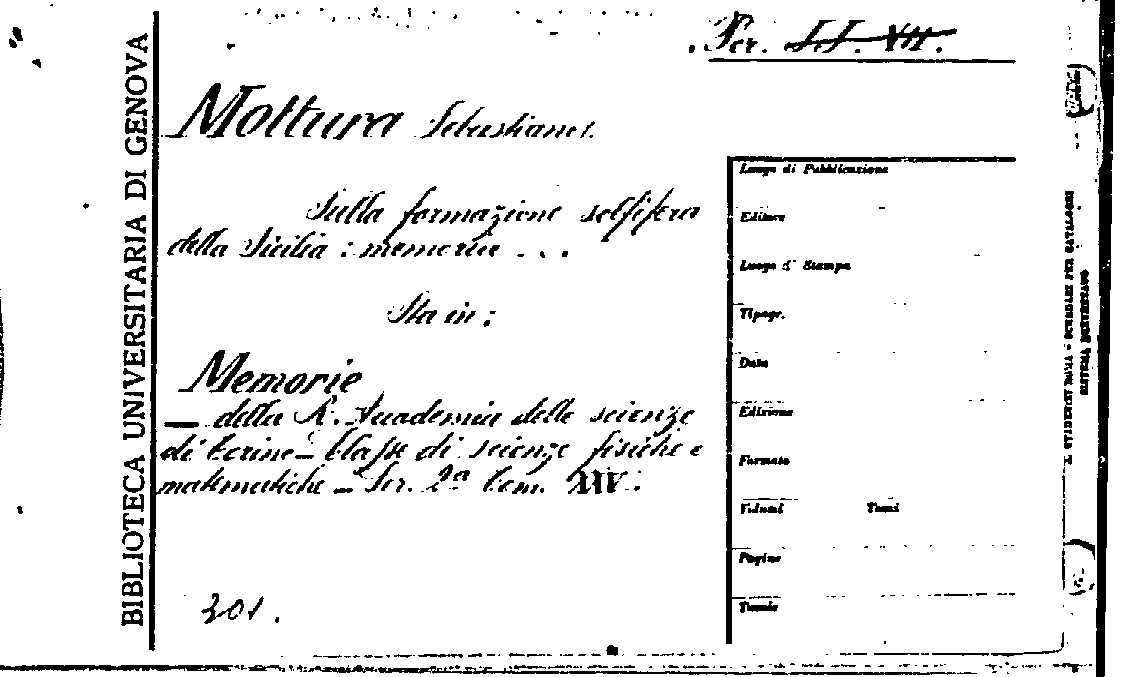 BIBLIOTECA UNIVERSITARIA DI GENOVA
Per.
Mottura Sebastiano.
Sulla formazione solfifera
della Sicilia : memoria . . .
Sta in :
Memorie
— della R. Accademia delle scienze
di Torino – Classe di scienze fisiche e
matematiche – Ser. 2ª Tom. XXV.
301.
Luogo di Pubblicazione
Editore
Luogo di Stampa
Tipogr.
Data
Edizione
Formato
Volumi Tomi
Pagine
Tavole
SCHEDARI PER CATALOGHI